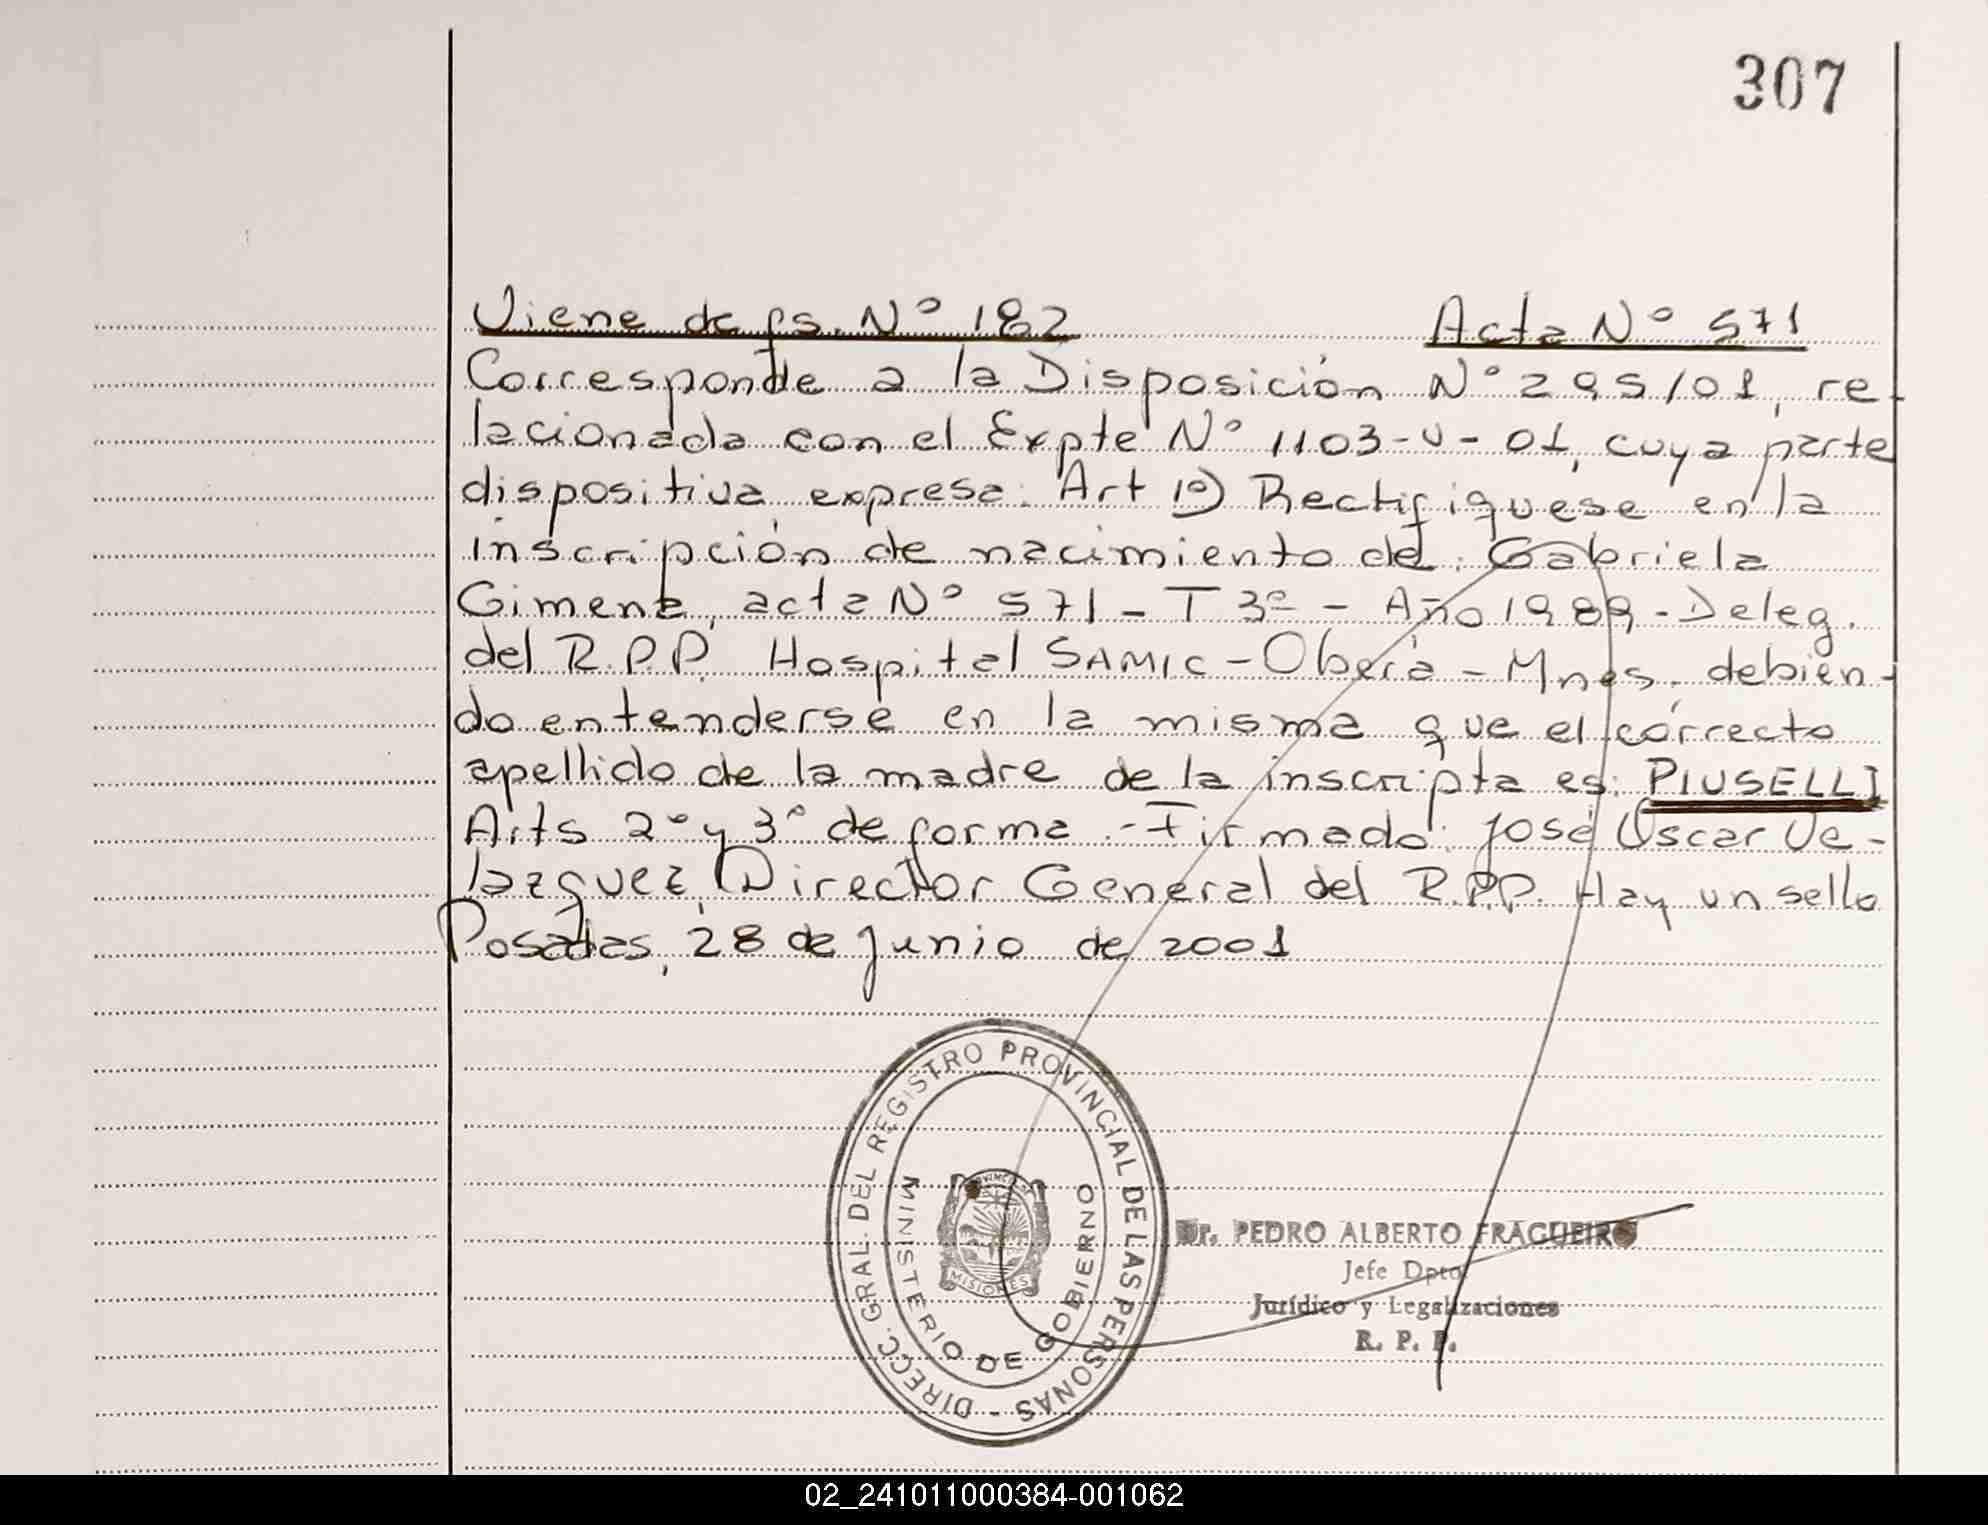 307
Viene de fs. Nº 182 Acta Nº 571
Corresponde a la Disposición Nº 295/01, re-
lacionada con el Expte Nº 1103-V-01, cuya parte
dispositiva expresa: Art 1º) Rectifíquese en la
inscripción de nacimiento de: Gabriela
Gimenz, acta Nº 571 - T 3º - Año 1989 - Deleg.
del R.P.P. Hospital SAMIC - Oberá - Mnes. debien-
do entenderse en la misma que el correcto
apellido de la madre de la inscripta es: PIUSELLI
Arts 2º y 3º de forma.- Firmado: José Oscar Ve-
lazquez, Director General del R.P.P. Hay un sello
Posadas, 28 de junio de 2001
DIRECC. GRAL. DEL REGISTRO PROVINCIAL DE LAS PERSONAS -
MINISTERIO DE GOBIERNO
MISIONES
Dr. PEDRO ALBERTO FRAGUEIRO
Jefe Dpto.
Jurídico y Legalizaciones
R. P. P.
02_241011000384-001062